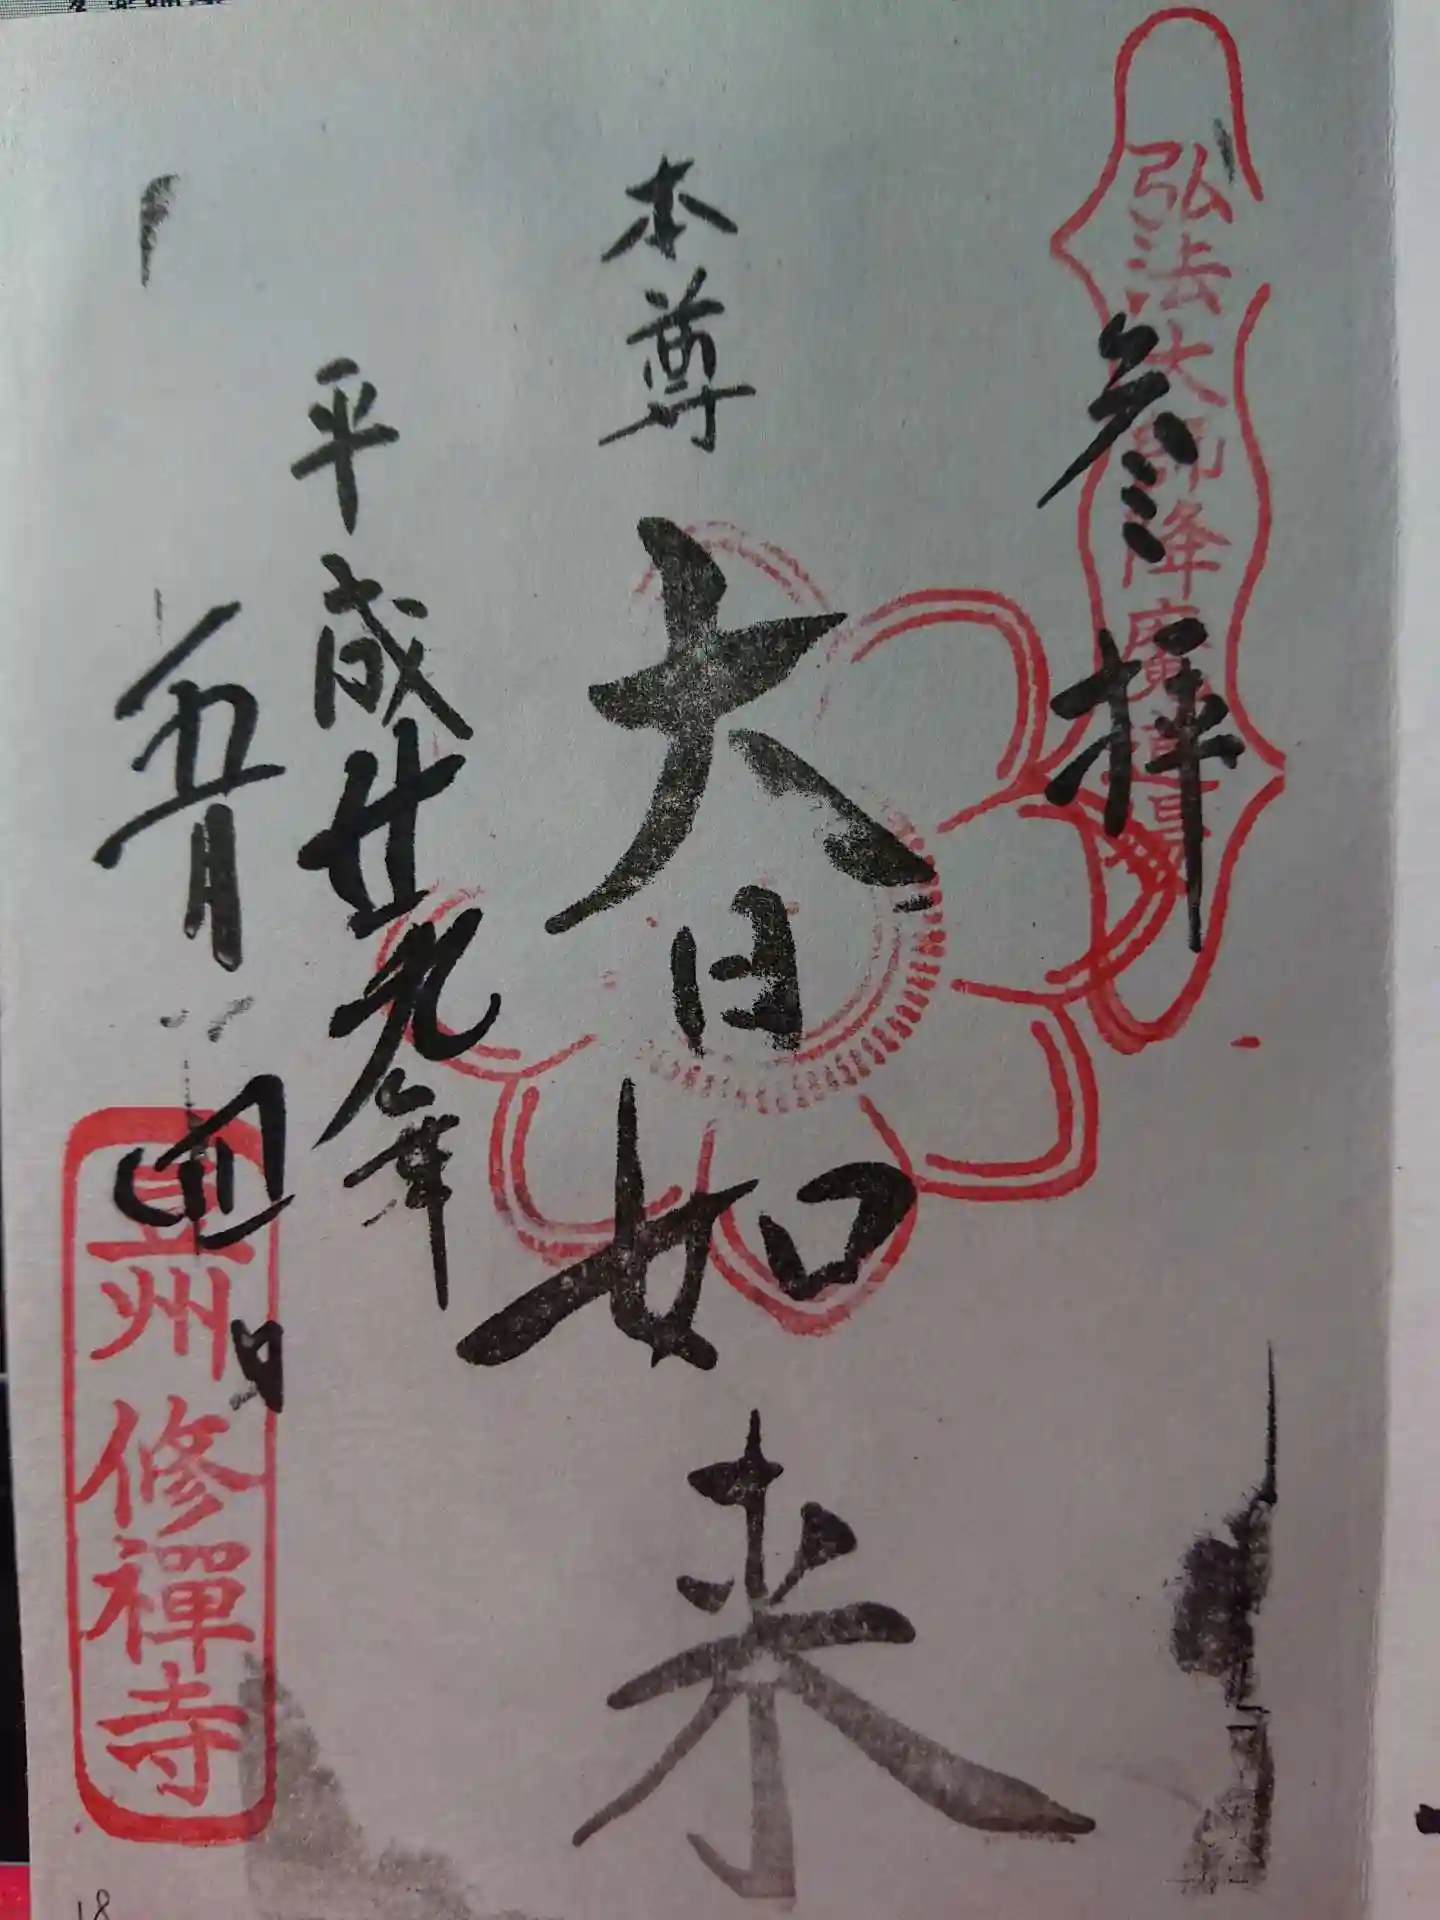 弘法大師降魔道場
参拝
本尊
大日如来
平成廿九年
五月
四日
豆州修禪寺
18